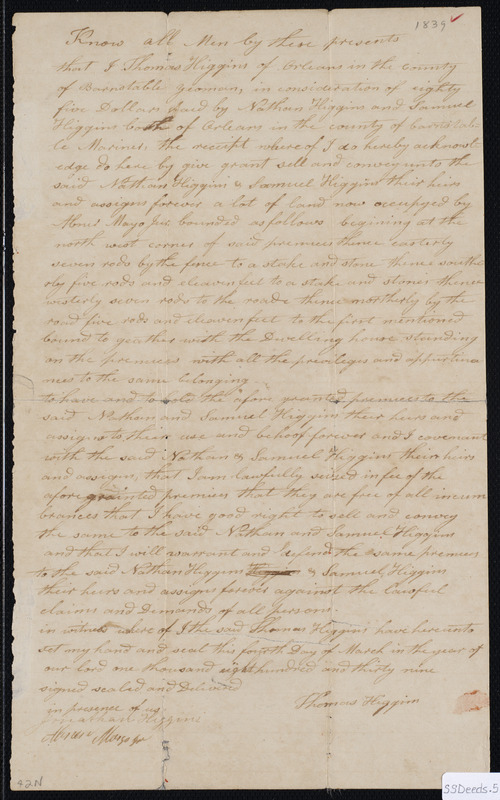 1839
Know all Men by these presents
that I Thomas Higgins of Orleans in the county
of Barnstable yioman, in consideration of eighty
five Dollars paid by Nathan Higgins and Samuel
Higgins both of Orleans in the county of barnstab-
le Marines, the receipt where of I do hereby acknowl-
edge do here by give grant sell and convey unto the
said Nathan Higgins & Samuel Higgins their heirs
and assigns forever a lot of land now occupyed by
Abner Mayo Jur bounded as follows begining at the
north west corner of said premises thence easterly
seven rods by the fence to a stake and stone thence southe
rly five rods and eleven feet to a stake and stones thence
westerly seven rods to the roade thence northerly by the
road five rods and eleven feet to the first mentioned
bound to geather with the Dwelling house standing
on the premises with all the privileges and appurtina
nces to the same belonging
to have and to hold the afore granted premises to the
said Nathan and Samuel Higgins their heirs and
assigns to their use and behoof forever and I covenant
with the said Nathan & Samuel Higgins their heirs
and assigns, that I am lawfully seized in fee of the
afore granted premises that they are free of all incum
brances that I have good right to sell and convey
the same to the said Nathan and Samuel Higgins
and that I will warrant and defend the same premises
to the said Nathan Higgins & Samuel Higgins
their heirs and assigns forever against the lawful
claims and Demands of all persons.
in witness where of I the said Thomas Higgins have here unto
set my hand and seal this fourth Day of March in the year of
our lord one thousand eight hundred and thirty nine
signed sealed and Delivered
in presence of us
Thomas Higgins
Jonathan Higgins
Abner Mayo Jr
42N
SSDeeds.5